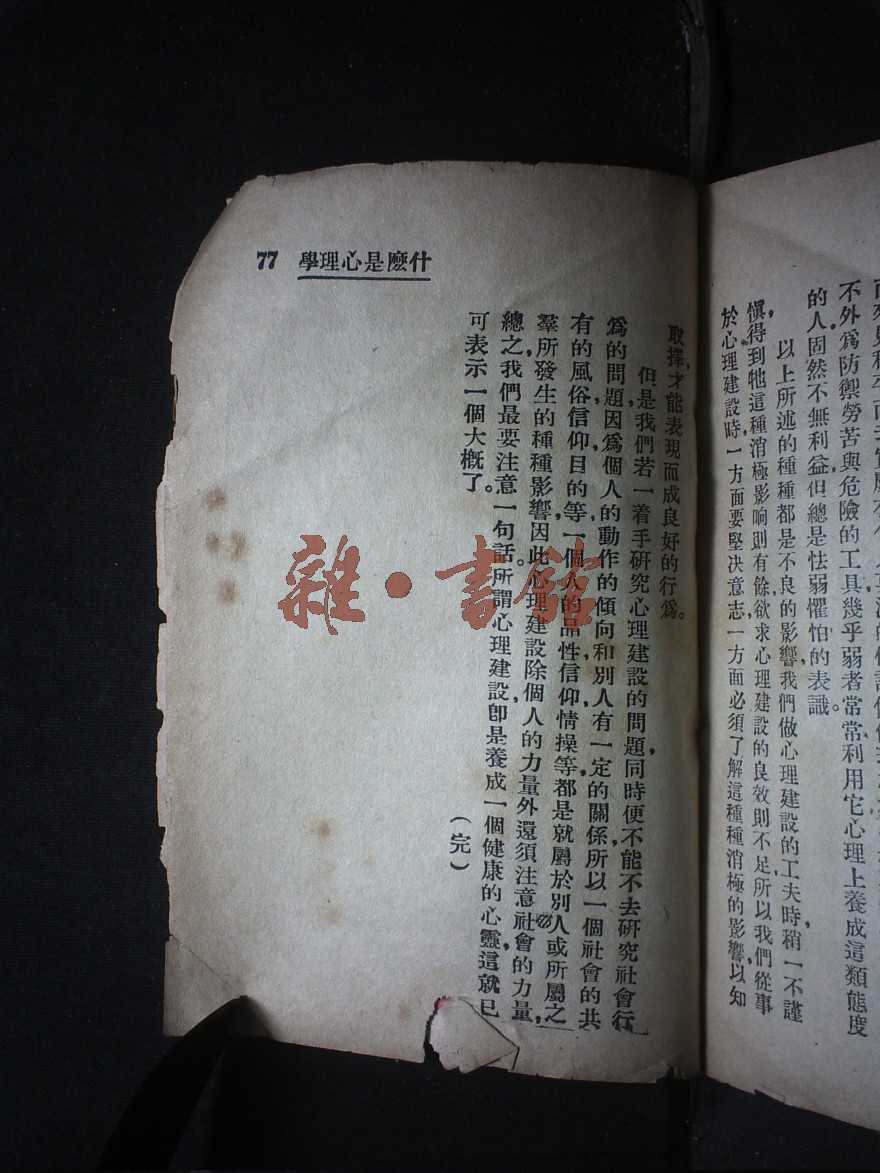 不外爲防禦勞苦與危險的工具幾乎弱者常常利用它心理上養成這類態度
的人固然不無利益,但總是怯弱懼怕的表識。
以上所述的種種都是不良的影響,我們做心理建設的工夫時,稍一不謹
愼,得到牠這種消極影响則有餘,欲求心理建設的良效則不足,所以我們從事
於心理建設時,一方面要堅决意志,一方面必須了解這種種消極的影響,以知
什麽是心理學 77
取擇,才能表現而成良好的行爲。
但是,我們若一着手研究心理建設的問題,同時便不能不去研究社會行
爲的問題,因爲個人的動作的傾向和別人有一定的關係,所以一個社會的共
有的風俗,信仰,目的等,一個人的品性,信仰,情操等,都是就屬於別人或所屬之
羣所發生的種種影響,因此,心理建設除個人的力量外,還須注意社會的力量,
總之,我們最要注意一句話。所謂心理建設,卽是養成一個健康的心靈,這就已
可表示一個大槪了。
(完)
雜·書館